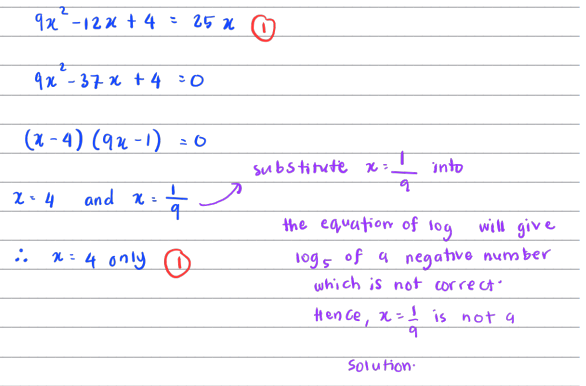 9x² - 12x + 4 = 25x ①
9x² - 37x + 4 = 0
(x - 4)(9x - 1) = 0
x = 4 and x = 1/9
∴ x = 4 only ①
substitute x = 1/9 into
the equation of log will give
log₅ of a negative number
which is not correct.
Hence, x = 1/9 is not a
solution.